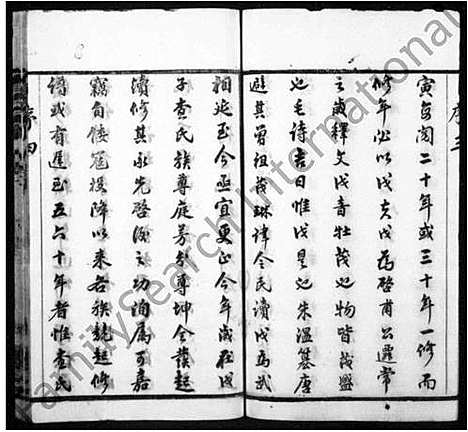 序三
寅每閱二十年或三十年一修而
修年必以戊夫戊為啓甫公遷常
之歲釋文戊音牡茂也物皆茂盛
也毛詩吉日惟戊是也朱溫篡唐
避其曾祖茂琳諱令民讀戊為武
相延至今亟宜更正今年歲在戊
子查氏族尊庭芳尊坤仝發起
續修其承先啓後之功洵屬可嘉
竊自倭寇投降以來各族競起修
譜或有遲至五六十年者惟查氏
序四
FamilySearch International